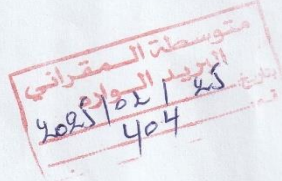 متوسطة المقراني
البريد الوارد
بتاريخ 2025/02/25
404